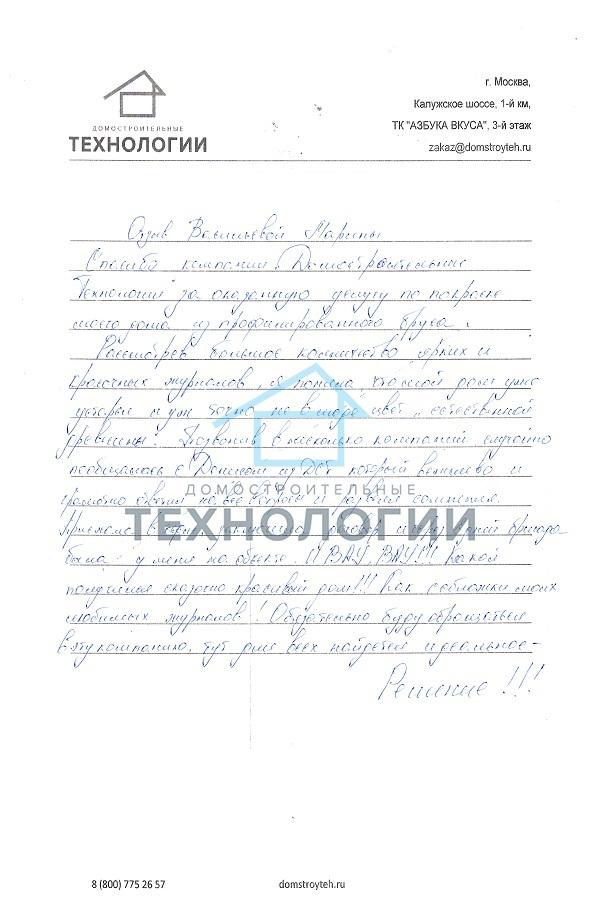 ДОМОСТРОИТЕЛЬНЫЕ
ТЕХНОЛОГИИ
г. Москва,
Калужское шоссе, 1-й км,
ТК "АЗБУКА ВКУСА", 3-й этаж
zakaz@domstroyteh.ru
Отзыв Васильевой Марины
Спасибо компании "Домостроительные
Технологии" за оказанную услугу по покраске
моего дома из профилированного бруса.
Рассмотрев большое количество ярких и
красочных журналов, я поняла, что мой дом уже
устарел и уж точно не в моде цвет "естественной
древесины". Позвонив в несколько компаний случайно
пообщалась с Денисом из ДСТ, который вежливо и
грамотно ответил на все вопросы и развеял сомнения.
Приехала в офис, заключила договор и через дней бригада
была у меня на объекте. И ВАУ, ВАУ!!! Какой
получился сказочно красивый дом!!! Как с обложки моих
любимых журналов! Обязательно буду обращаться
в эту компанию, тут для всех найдется идеальное-
Решение!!!
ДОМОСТРОИТЕЛЬНЫЕ
ТЕХНОЛОГИИ
8 (800) 775 26 57
domstroyteh.ru